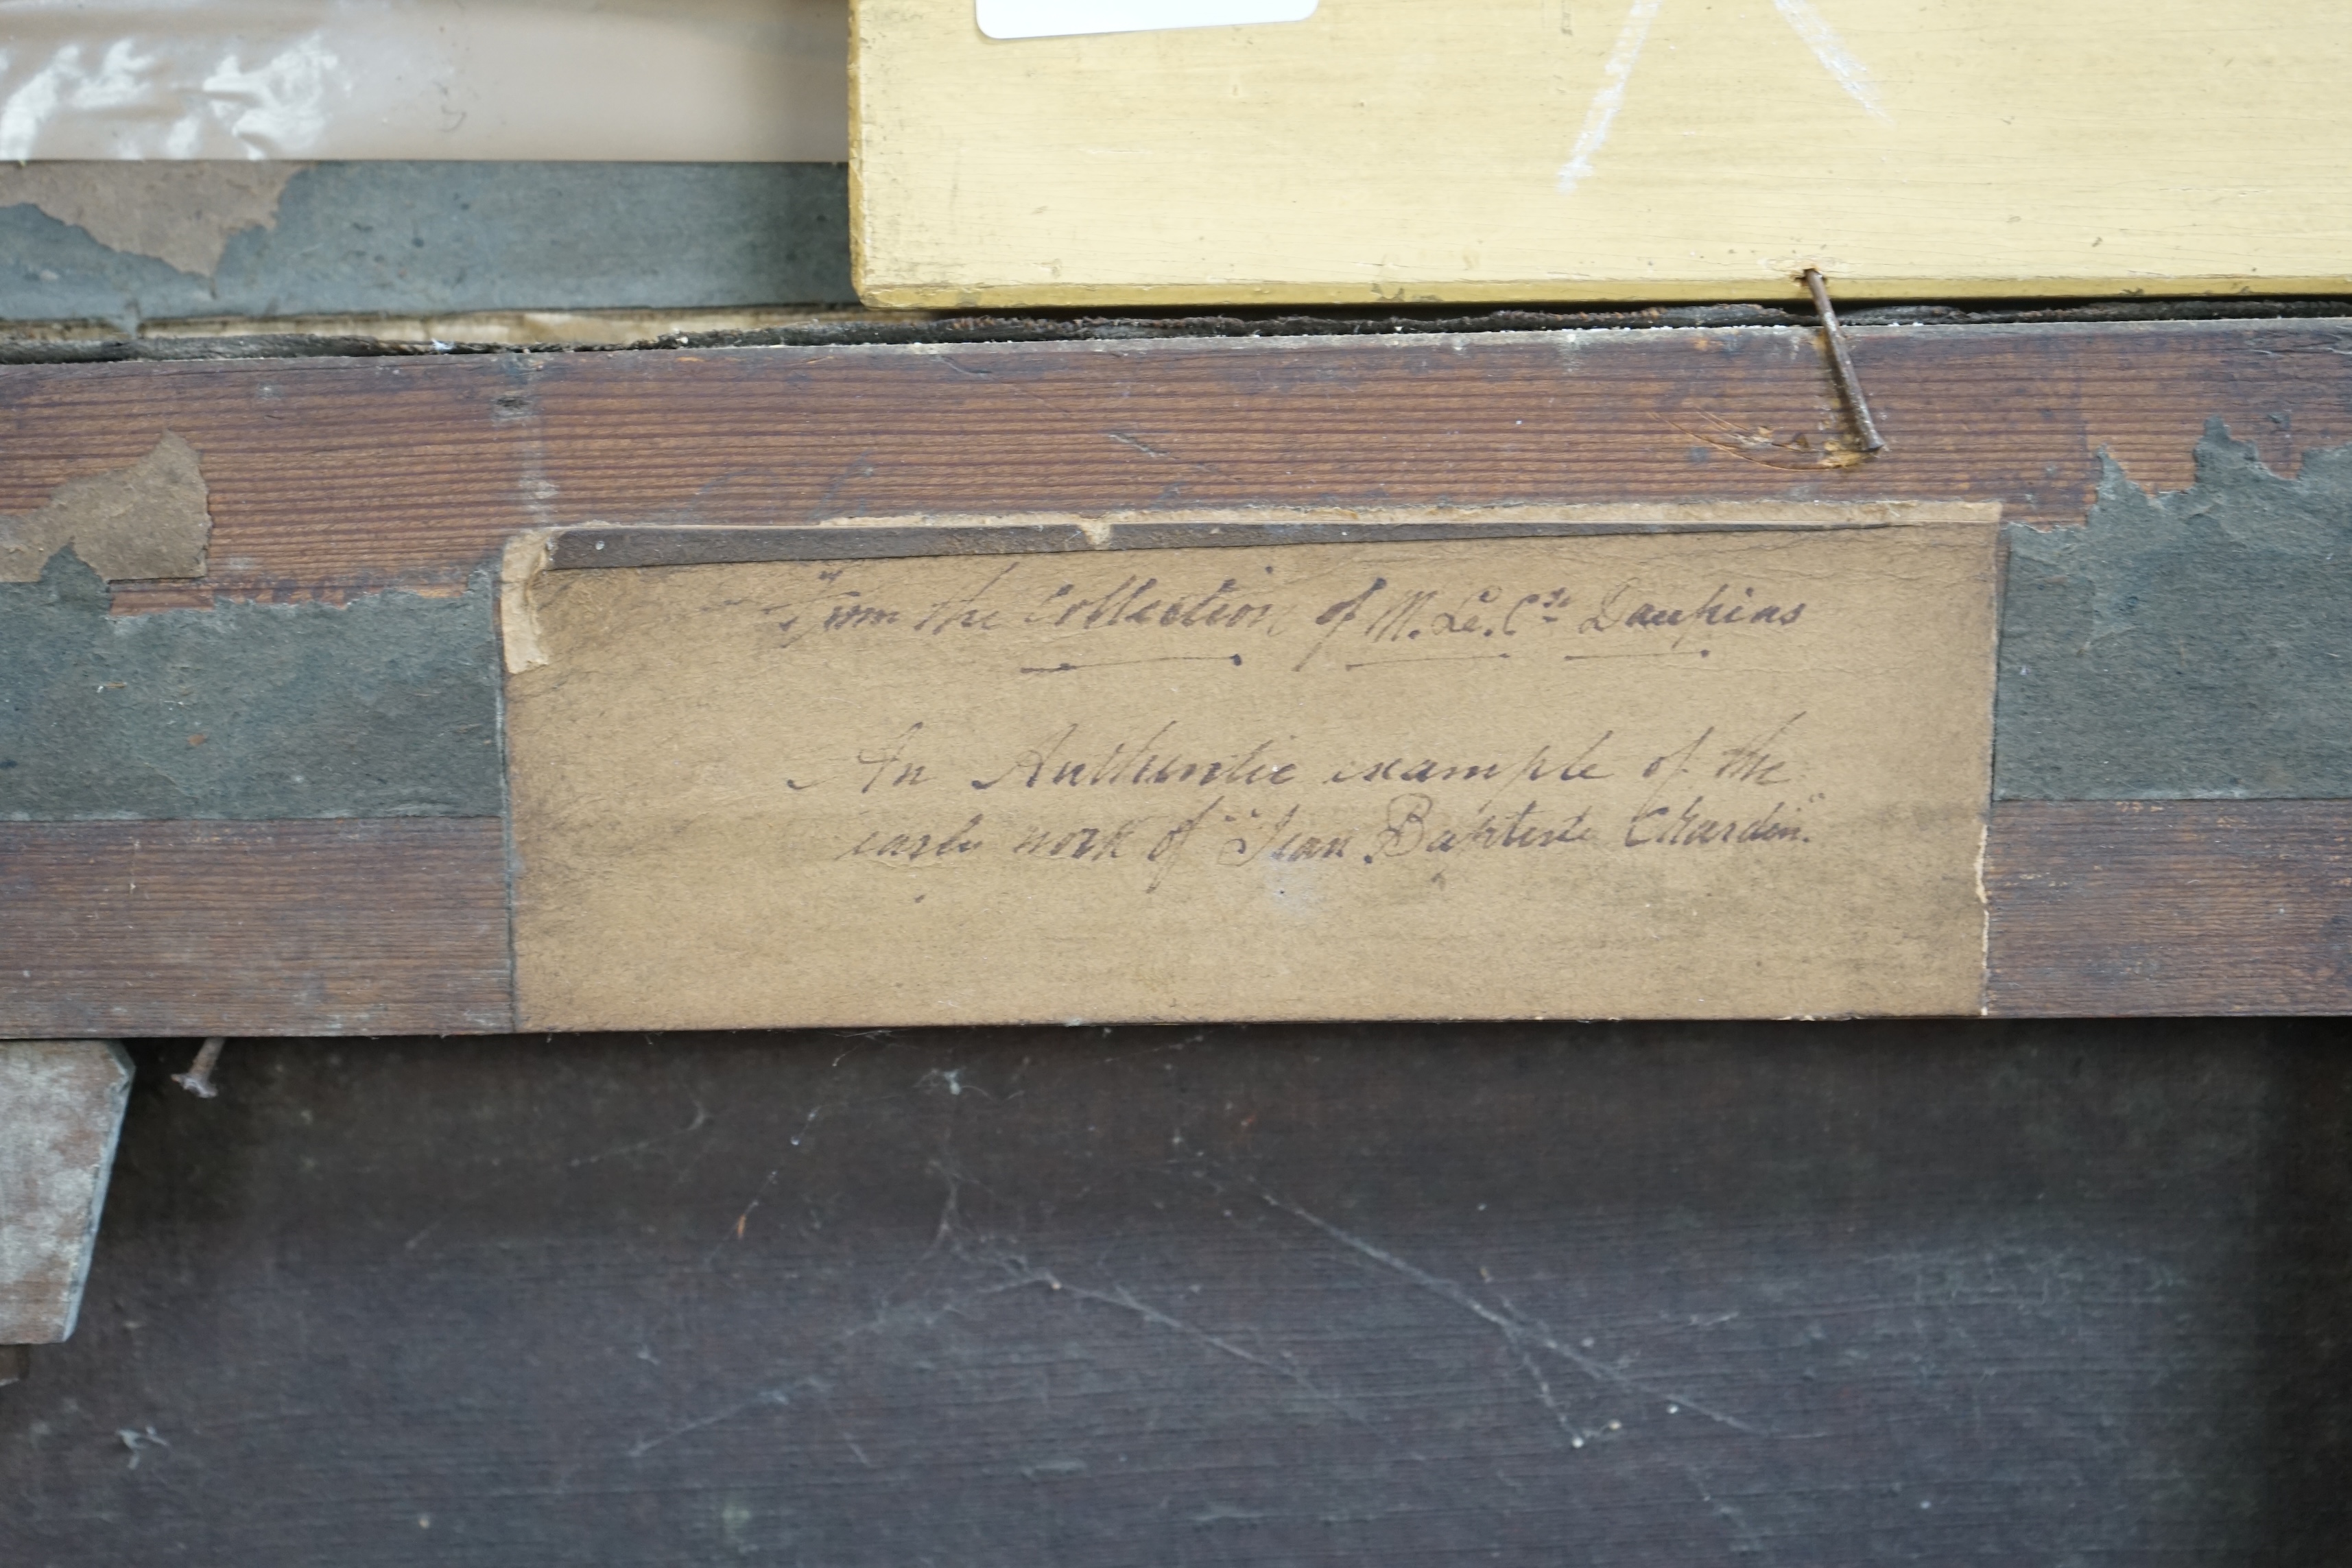 From the Collection of M. Le. Cte Daupias
An Authentic example of the
early work of "Jean Baptiste Chardin."